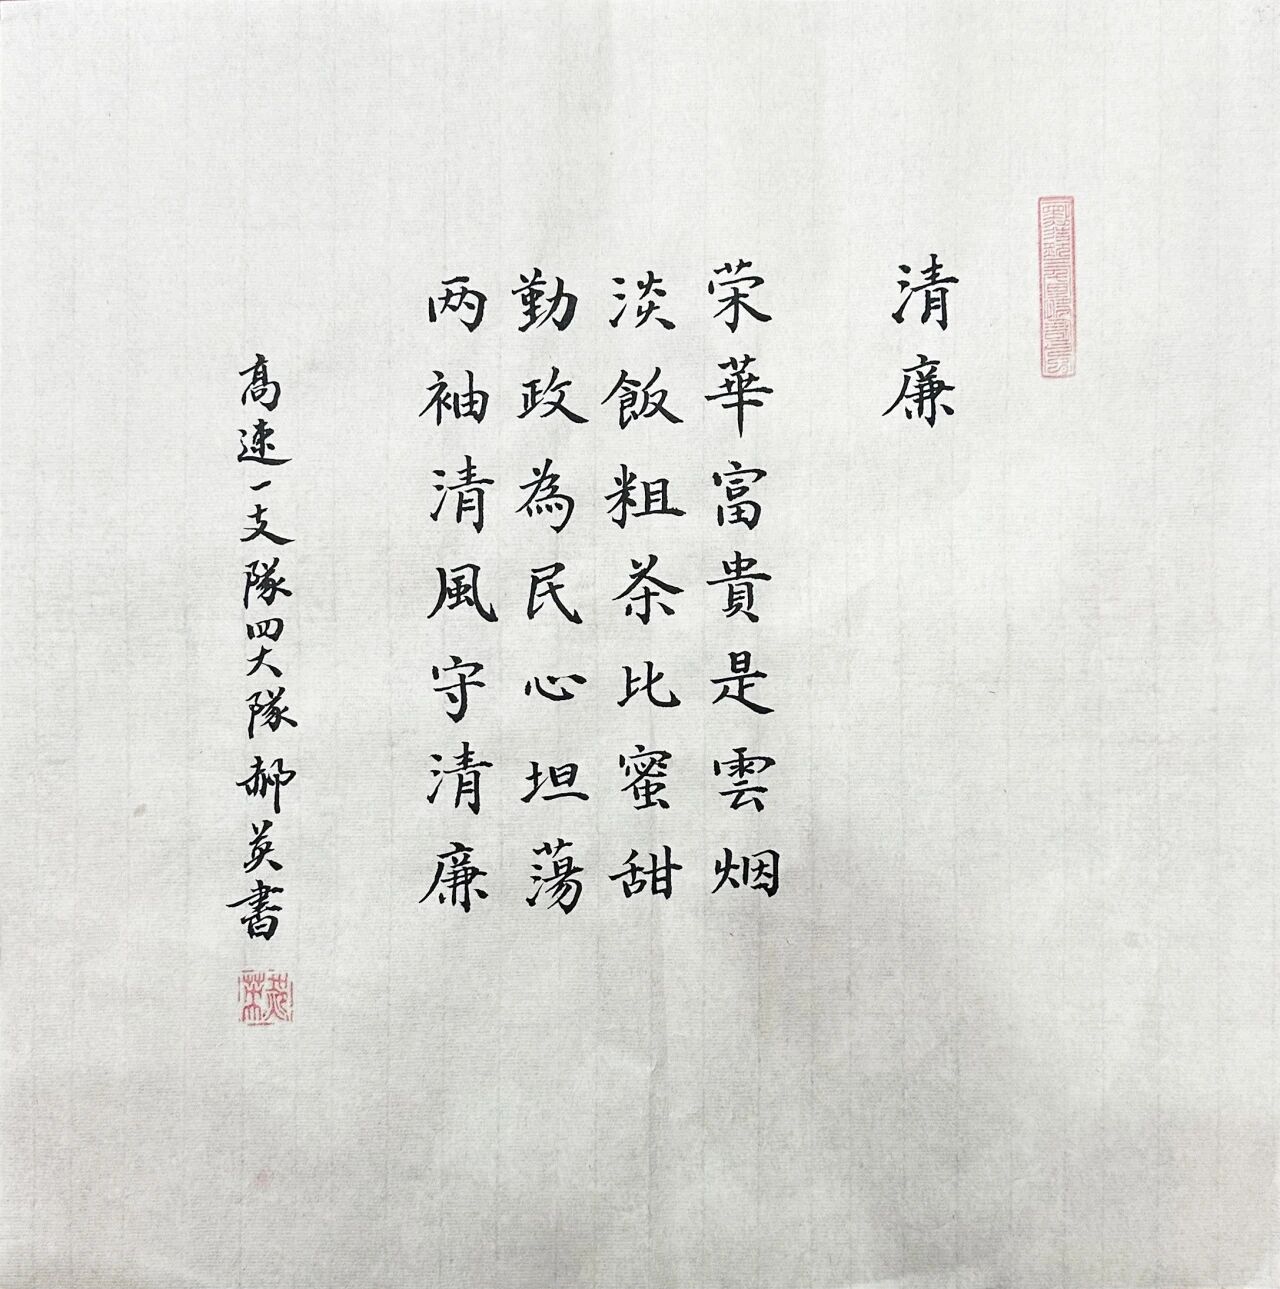 清廉
荣華富貴是雲烟
淡飯粗茶比蜜甜
勤政為民心坦蕩
两袖清風守清廉
高速一支隊四大隊郝英書